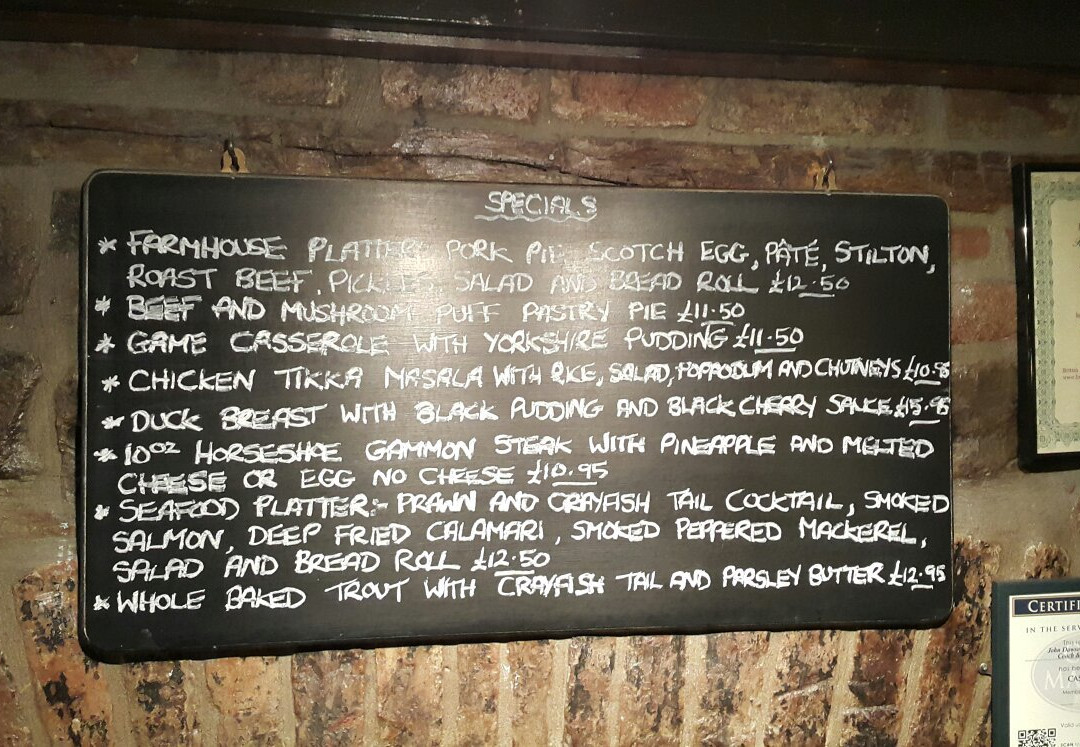 SPECIALS
* FARMHOUSE PLATTER, PORK PIE, SCOTCH EGG, PÂTÉ, STILTON,
ROAST BEEF, PICKLES, SALAD AND BREAD ROLL £12.50
* BEEF AND MUSHROOM PUFF PASTRY PIE £11.50
* GAME CASSEROLE WITH YORKSHIRE PUDDING £11.50
* CHICKEN TIKKA MASALA WITH RICE, SALAD, POPPODUM AND CHUTNEYS
* DUCK BREAST WITH BLACK PUDDING AND BLACK CHERRY SAUCE £15.95
* 10OZ HORSESHOE GAMMON STEAK WITH PINEAPPLE AND MELTED
CHEESE OR EGG NO CHEESE £10.95
* SEAFOOD PLATTER:- PRAWN AND CRAYFISH TAIL COCKTAIL, SMOKED
SALMON, DEEP FRIED CALAMARI, SMOKED PEPPERED MACKEREL,
SALAD AND BREAD ROLL £12.50
* WHOLE BAKED TROUT WITH CRAYFISH TAIL AND PARSLEY BUTTER £12.95
IN THE
John